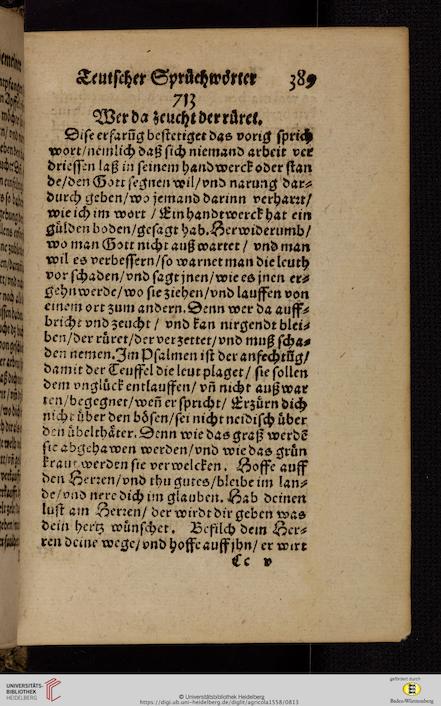 Teutscher Sprüchwörter 389
713
Wer da zeucht der rüret.
Dise erfarũg bestetiget das vorig sprich
wort/nemlich daß sich niemand arbeit ver
driessen laß in seinem handwerck oder stan
de/den Gott segnen wil/vnd narung dar-
durch geben/wo jemand darinn verharrt/
wie ich im wort / Ein handtwerck hat ein
gülden boden/gesagt hab. Herwiderumb/
wo man Gott nicht außwartet / vnd man
wil es verbessern/so warnet man die leuth
vor schaden/vnd sagt jnen/wie es jnen er-
gehn werde/wo sie ziehen/vnd lauffen von
einem ort zum andern. Denn wer da auff-
bricht vnd zeucht / vnd kan nirgendt blei-
ben/der rüret/der verzettet/vnd muß scha-
den nemen. Im Psalmen ist der anfechtũg/
damit der Teuffel die leut plaget / sie sollen
dem vnglück entlauffen/ vñ nicht auß war
ten/begegnet/weñ er spricht/ Erzürn dich
nicht über den bösen/sei nicht neidisch über
den übelthäter. Denn wie das graß werdẽ
sie abgehawen werden/vnd wie das grün
kraut werden sie verwelcken. Hoffe auff
den Herren/vnd thu gutes/bleibe im lan-
de/vnd nere dich im glauben. Hab deinen
lust am Herren/ der wirdt dir geben was
dein hertz wünschet. Befilch dem Her-
ren deine wege/ vnd hoffe auff jhn/ er wirt
Cc v
UNIVERSITÄTS-
BIBLIOTHEK
HEIDELBERG
© Universitätsbibliothek Heidelberg
https://digi.ub.uni-heidelberg.de/diglit/agricola1558/0813
gefördert durch
Baden-Württemberg